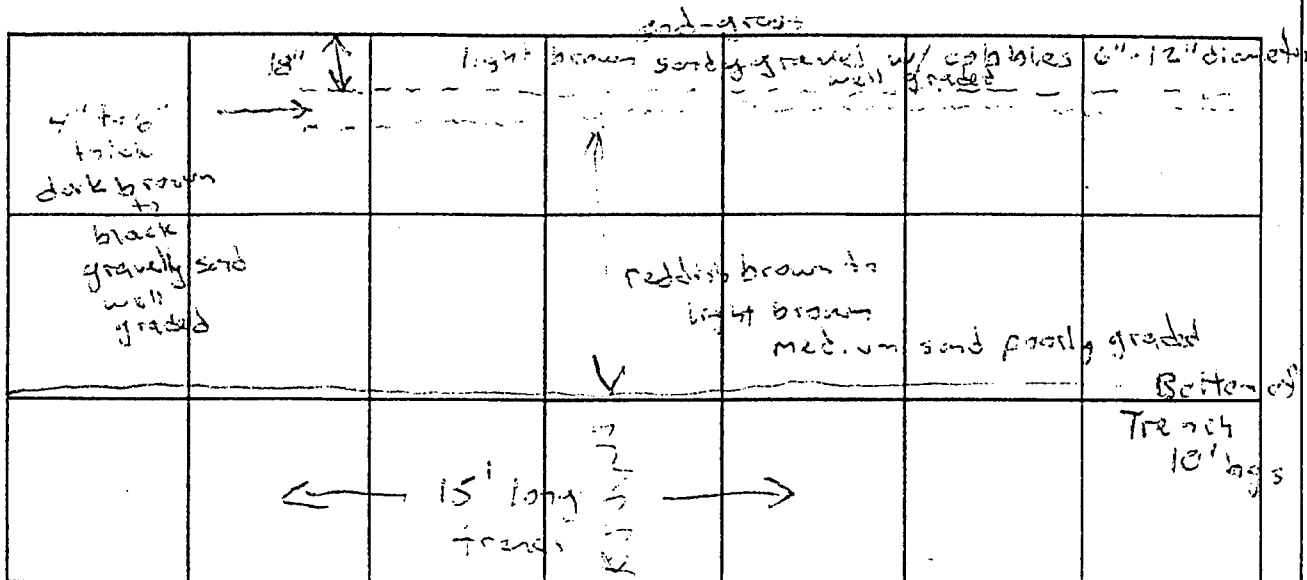 18"
light brown sandy gravel w/ cobbles 6"-12" diameter
well graded
4" to 6"
thick
dark brown
to
black
gravelly sand
well
graded
reddish brown to
light brown
medium sand poorly graded
Bottom of
Trench
10' bgs
15' long
trench